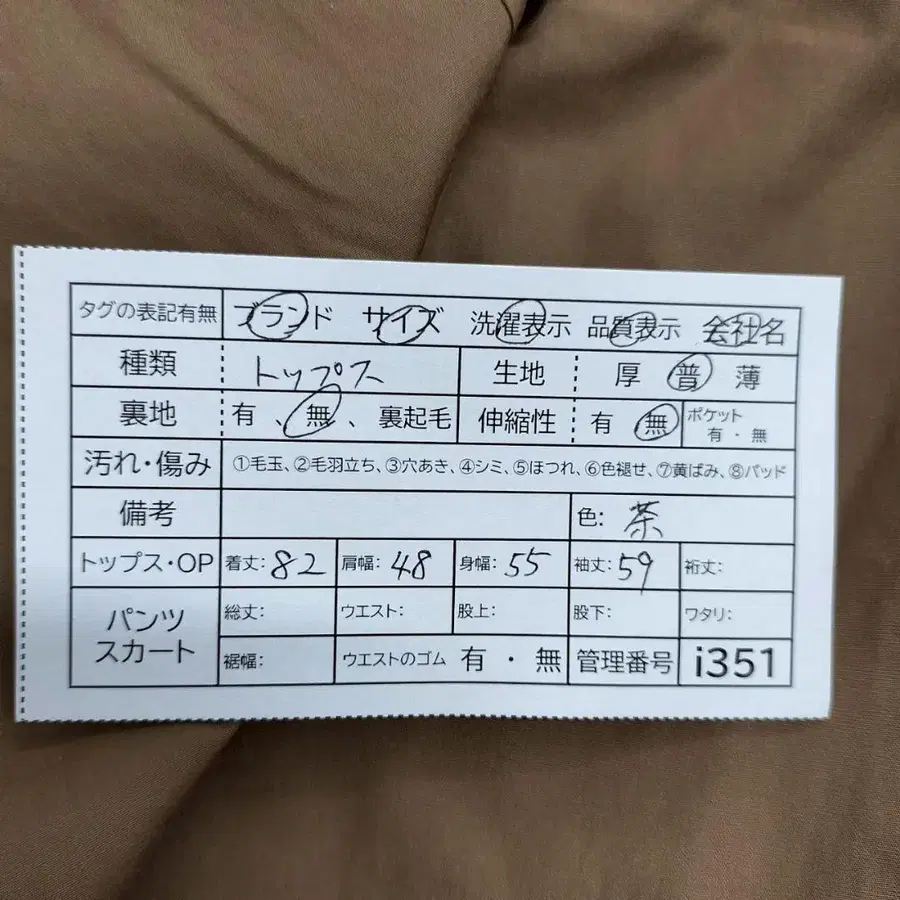 タグの表記有無 ブランド サイズ 洗濯表示 品質表示 会社名
種類 トップス 生地 厚 普 薄
裏地 有 、無、裏起毛 伸縮性 有 無 ポケット 有・無
汚れ・傷み ①毛玉、②毛羽立ち、③穴あき、④シミ、⑤ほつれ、⑥色褪せ、⑦黄ばみ、⑧パッド
備考 色: 茶
トップス・OP 着丈:82 肩幅:48 身幅:55 袖丈:59 裄丈:
パンツ スカート 総丈: ウエスト: 股上: 股下: ワタリ:
裾幅: ウエストのゴム 有・無 管理番号 i351